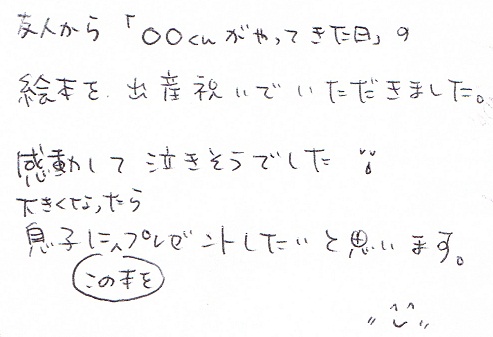 友人から「〇〇くんがやってきた日」の
絵本を出産祝いでいただきました。
感動して泣きそうでした
大きくなったら
息子にプレゼントしたいと思います。
この本を